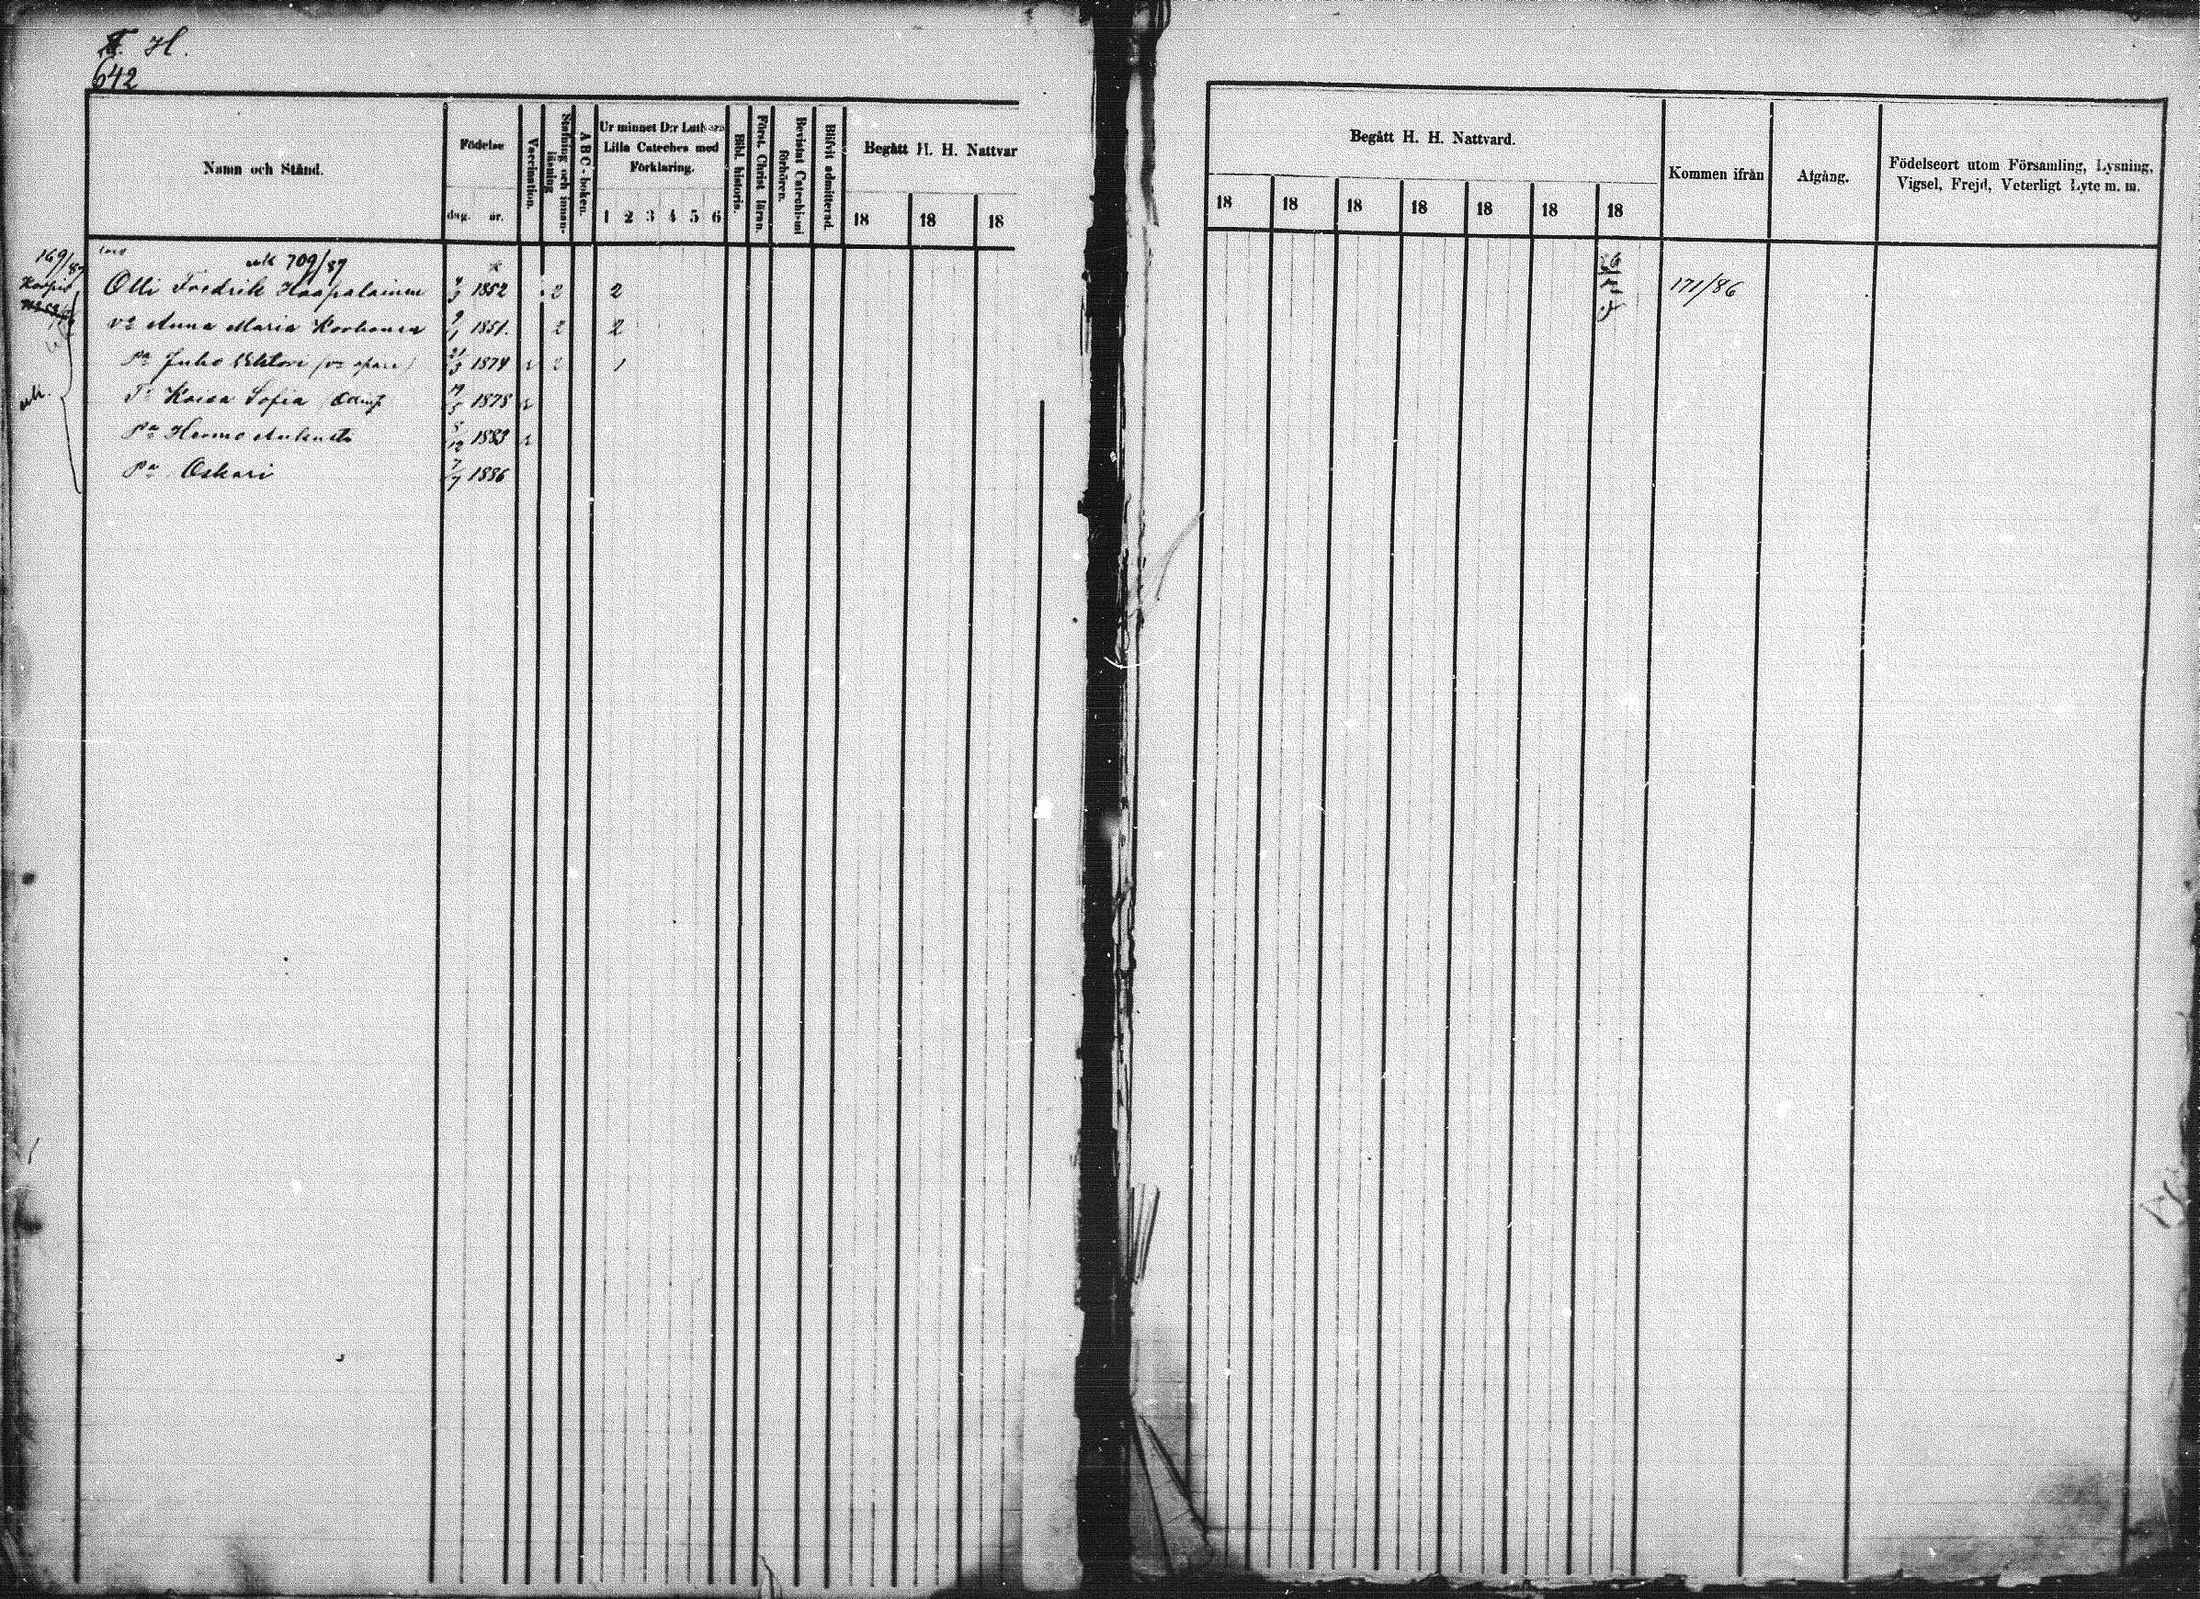 H.
642
Namn och Stånd.
Födelse
dag. år.
Vaccination.
Stafning och innanläsning
ABC-boken.
Ur minnet D:r Luthers
Lilla Cateches med
Förklaring.
1 2 3 4 5 6
Bibl. historia.
Först. Christ läran.
Bevistat Catechismi förhören.
Blifvit admitterad.
Begått H. H. Nattvar
18 18 18
Begått H. H. Nattvard.
18 18 18 18 18 18 18
Kommen ifrån
Afgång.
Födelseort utom Församling, Lysning,
Vigsel, Frejd, Veterligt Lyte m. m.
169/87
709/87
Olli Fredrik Haapalainen 1852 2 2 171/86
Anna Maria Korhonen 9/1 1851. 2 2
Juho 21/3 1874 2 1
Kaisa Sofia 1878
Hermo 1883
Oskari 7/7 1886